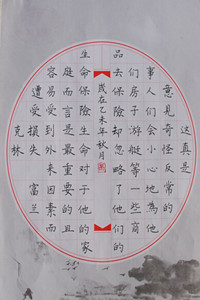 這真是
意見奇怪反常的
事人们会小心地為他
们房子游艇等一些商
品去保險却忽略了他们的
歲在乙未年秋月
生命保險生命对于他的家
庭而言是最重要的且
容易受到外來因素而
遭受損失 富兰
克林